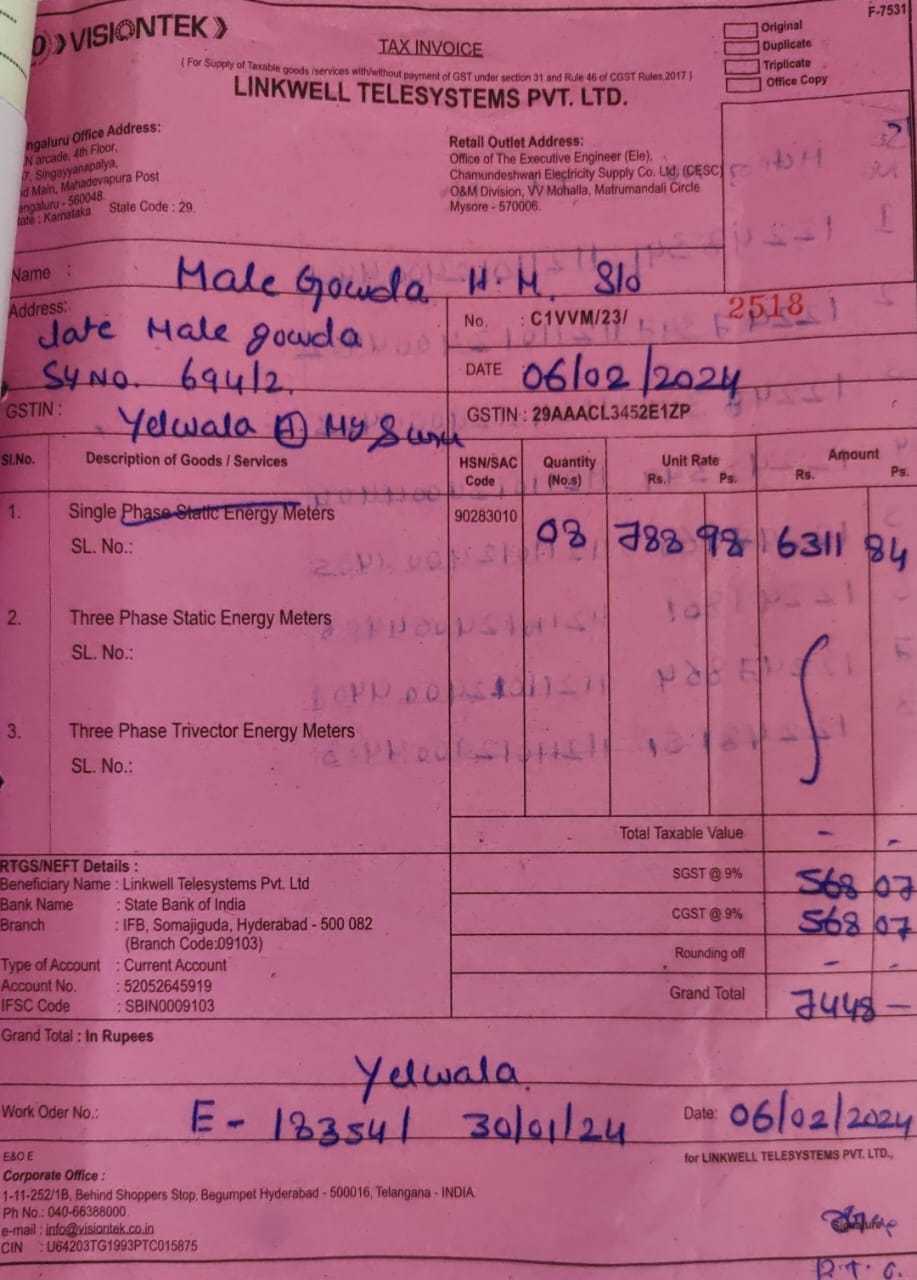 F-7531
VISIONTEK
TAX INVOICE
Original
Duplicate
Triplicate
Office Copy
( For Supply of Taxable goods /services with/without payment of GST under section 31 and Rule 46 of CGST Rules,2017 )
LINKWELL TELESYSTEMS PVT. LTD.
ngaluru Office Address:
N arcade, 4th Floor,
7, Singayyanapalya,
d Main, Mahadevapura Post
engaluru - 560048.
tate : Karnataka State Code : 29.
Retail Outlet Address:
Office of The Executive Engineer (Ele),
Chamundeshwari Electricity Supply Co. Ltd, (CESC)
O&M Division, VV Mohalla, Matrumandali Circle
Mysore - 570006.
Name : Male Gowda H.M. S/o
Address: late Male gowda
SY NO. 694/2.
No. : C1VVM/23/ 2518
DATE 06/02/2024
GSTIN : Yelwala (H) MySuru
GSTIN : 29AAACL3452E1ZP
Sl.No. Description of Goods / Services HSN/SAC Code Quantity (No.s) Unit Rate Rs. Ps. Amount Rs. Ps.
1. Single Phase Static Energy Meters 90283010 08 788 98 6311 84
SL. No.:
2. Three Phase Static Energy Meters
SL. No.:
3. Three Phase Trivector Energy Meters
SL. No.:
Total Taxable Value - -
SGST @ 9% 568 07
CGST @ 9% 568 07
Rounding off - -
Grand Total 7448 -
RTGS/NEFT Details :
Beneficiary Name : Linkwell Telesystems Pvt. Ltd
Bank Name : State Bank of India
Branch : IFB, Somajiguda, Hyderabad - 500 082
(Branch Code:09103)
Type of Account : Current Account
Account No. : 52052645919
IFSC Code : SBIN0009103
Grand Total : In Rupees
Yelwala
Work Oder No.: E - 183541 30/01/24 Date: 06/02/2024
E&O E
for LINKWELL TELESYSTEMS PVT. LTD.,
Corporate Office :
1-11-252/1B, Behind Shoppers Stop, Begumpet Hyderabad - 500016, Telangana - INDIA.
Ph No.: 040-66388000
e-mail : info@visiontek.co.in
CIN : U64203TG1993PTC015875
Signature